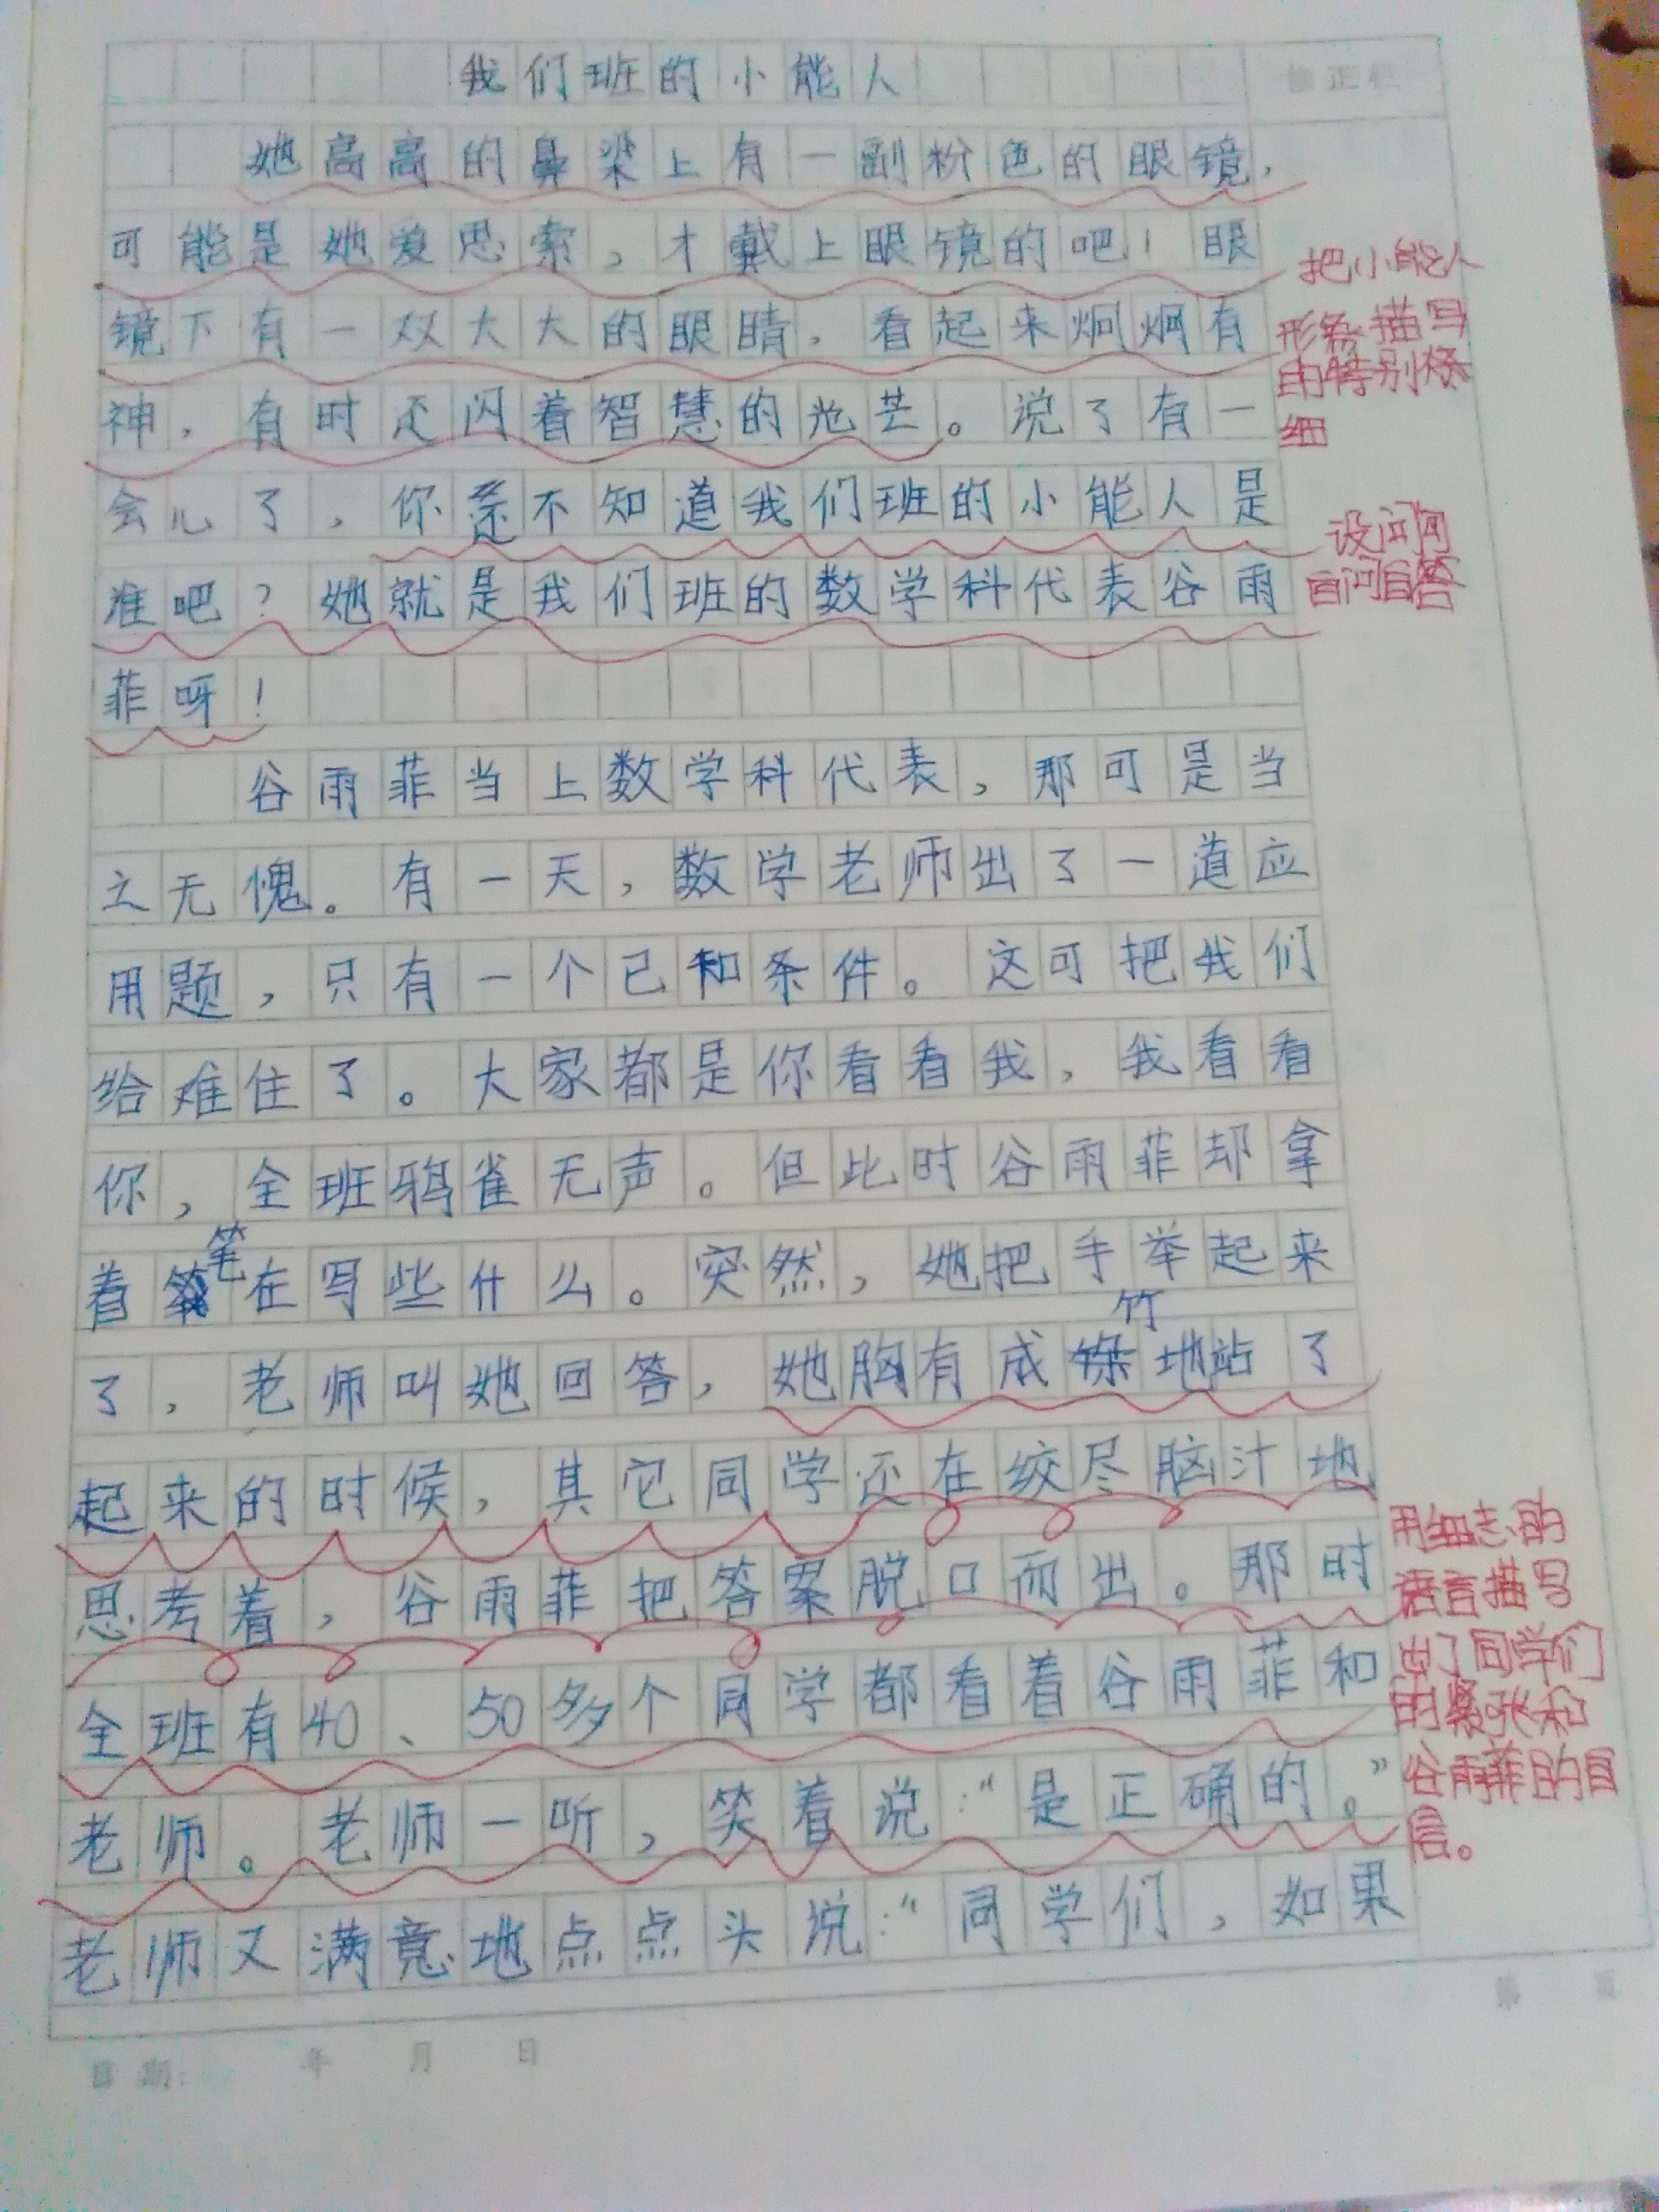 我们班的小能人
修正栏
她高高的鼻梁上有一副粉色的眼镜,
可能是她爱思索,才戴上眼镜的吧!眼
镜下有一双大大的眼睛,看起来炯炯有
神,有时还闪着智慧的光芒。说了有一
会儿了,你还不知道我们班的小能人是
谁吧?她就是我们班的数学科代表谷雨
菲呀!
谷雨菲当上数学科代表,那可是当
之无愧。有一天,数学老师出了一道应
用题,只有一个已知条件。这可把我们
给难住了。大家都是你看看我,我看看
你,全班鸦雀无声。但此时谷雨菲却拿
着笔在写些什么。突然,她把手举起来
了,老师叫她回答,她胸有成竹地站了
起来的时候,其它同学还在绞尽脑汁地
思考着,谷雨菲把答案脱口而出。那时
全班有40、50多个同学都看着谷雨菲和
老师。老师一听,笑着说:“是正确的。”
老师又满意地点点头说:“同学们,如果
把小能人
形象描写
由特别
细
设问句
自问自答
用细志的
语言描写
出了同学们
的紧张和
谷雨菲的自
信。
第 页
日期: 年 月 日